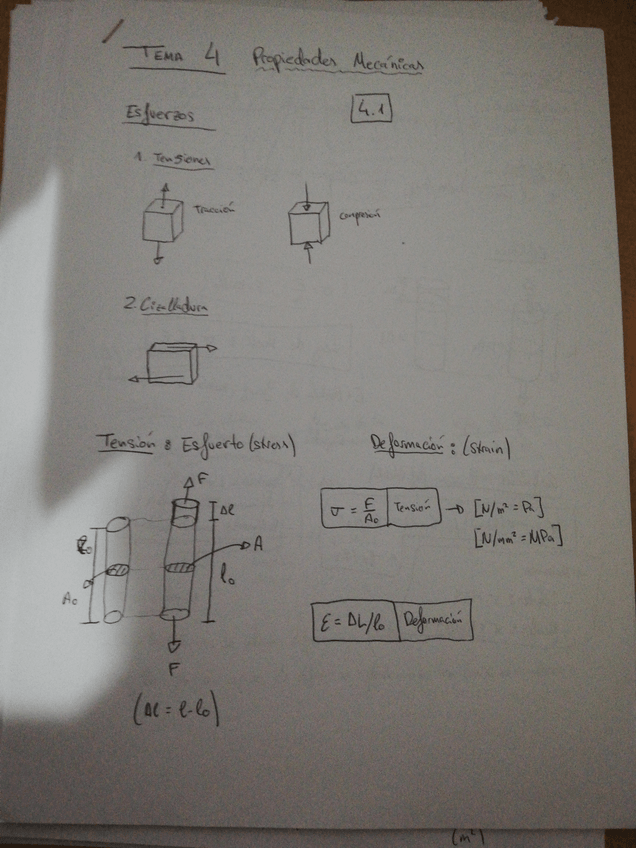 TEMA 4 Propiedades Mecánicas
4.1
Esfuerzos
1. Tensiones
Tracción
compresión
2. Cizalladura
Tensión : Esfuerto (stress)
Deformación : (strain)
F
Δl
σ = F/A₀ Tensión → [N/m² = Pa]
[N/mm² = MPa]
l₀
A
A₀
l₀
F
ε = ΔL/l₀ Deformación
(Δl = l - l₀)
(m²)